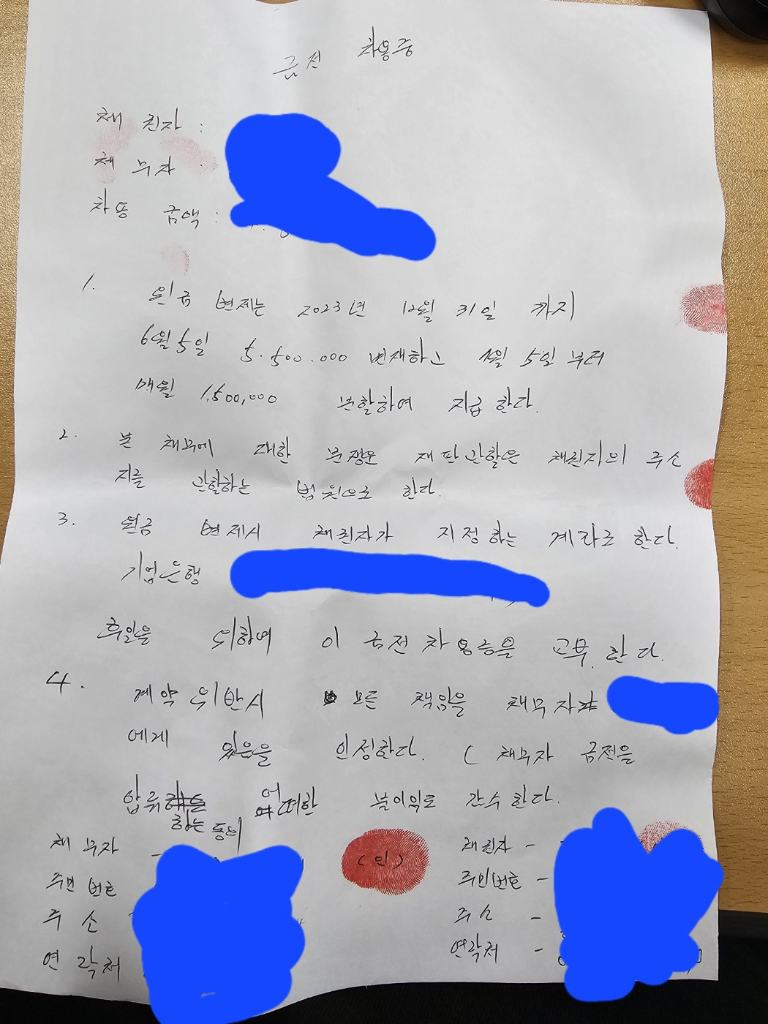 금전 차용증
채권자 :
채무자 :
차용 금액 :
1. 원금 변제는 2023년 12월 31일 까지
6월 5일 5.500.000 변재하고 월 5일 부터
매월 1,500,000 분할하여 지급 한다.
2. 본 채무에 대한 분쟁은 재판관할은 채권자의 주소
지를 관할하는 법원으로 한다.
3. 원금 변제시 채권자가 지정하는 계좌로 한다.
기업은행
후일을 위하여 이 금전 차용증을 교부 한다.
4. 계약 위반시 모든 책임을 채무자
에게 있음을 인정한다. ( 채무자 금전을
압류하는 등의 어떠한 불이익도 간수 한다.
채무자 - (인) 채권자 -
주민번호 주민번호 -
주소 주소 -
연락처 연락처 -